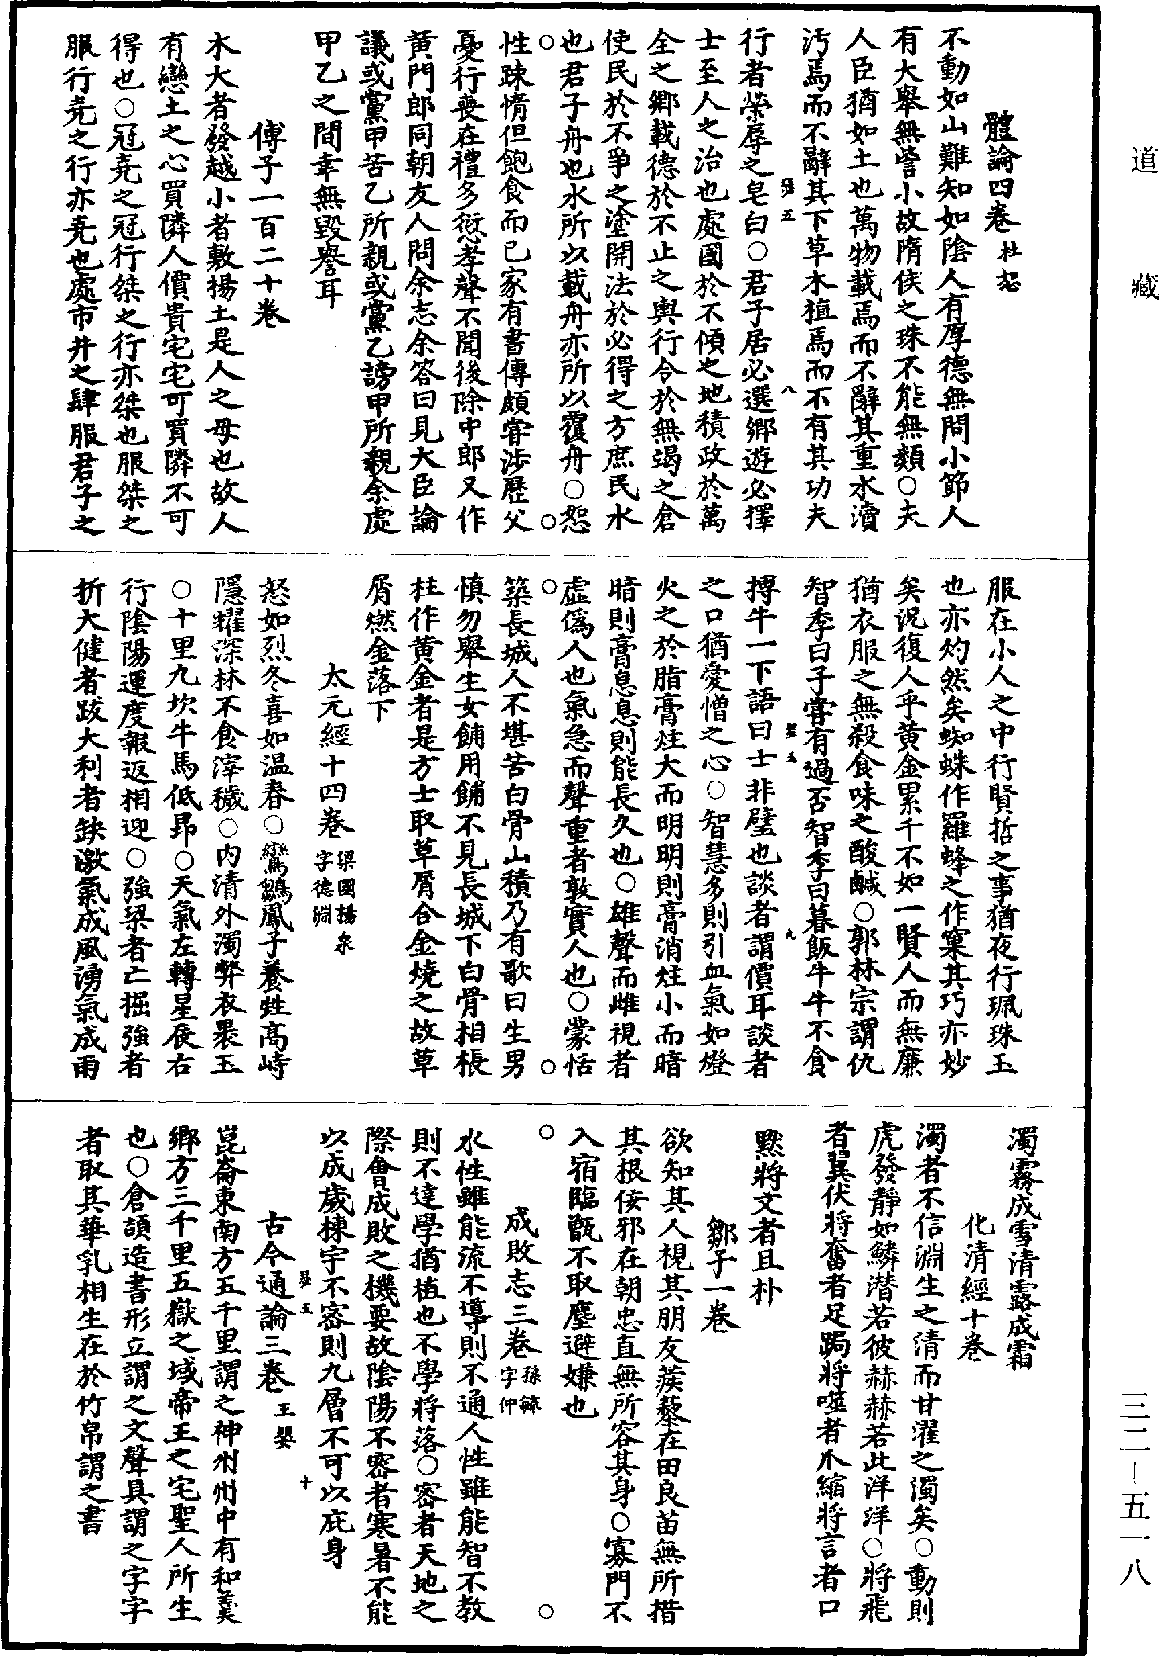 道藏
三二—五一八
體論四卷 杜恕
不動如山難知如陰人有厚德無問小節人
有大舉無訾小故隋侯之珠不能無纇○夫
人臣猶如土也萬物載焉而不辭其重水瀆
汚焉而不辭其下草木植焉而不有其功夫
行者榮辱之皂白○君子居必選鄉遊必擇
士至人之治也處國於不傾之地積政於萬
全之鄉載德於不止之輿行令於無竭之倉
使民於不爭之塗開法於必得之方庶民水
也君子舟也水所以載舟亦所以覆舟○恕
性踈惰但飽食而已家有書傳頗嘗涉歷父
憂行喪在禮多愆孝聲不聞後除中郎又作
黃門郎同朝友人問余志余答曰見大臣論
議或黨甲苦乙所親或黨乙謗甲所親余處
甲乙之間幸無毀譽耳
傅子一百二十卷
木大者發越小者敷揚土是人之母也故人
有戀土之心買隣人價貴宅宅可買隣不可
得也○冠堯之冠行桀之行亦桀也服桀之
服行堯之行亦堯也處市井之肆服君子之
服在小人之中行賢哲之事猶夜行珮珠玉
也亦灼然矣蜘蛛作羅蜂之作窠其巧亦妙
矣況復人乎黃金累千不如一賢人而無廉
猶衣服之無殺食味之酸鹹○郭林宗謂仇
智季曰子嘗有過否智季曰暮飯牛牛不食
搏牛一下語曰士非璧也談者謂價耳談者
之口猶愛憎之心○智慧多則引血氣如燈
火之於脂膏炷大而明明則膏消炷小而暗
暗則膏息息則能長久也○雄聲而雌視者
虛僞人也氣急而聲重者敦實人也○蒙恬
築長城人不堪苦白骨山積乃有歌曰生男
慎勿舉生女餔用餔不見長城下白骨相棖
柱作黃金者是方士取草屑合金燒之故草
屑燃金落下
太元經十四卷 梁國揚泉字德淵
怒如烈冬喜如温春○鸞鶵鳳子養甡高峙
隱耀深林不食滓穢○内清外濁弊衣褁玉
○十里九坎牛馬低昂○天氣左轉星辰右
行陰陽運度報返相迎○強梁者亡掘強者
折大健者跋大利者缺激氣成風湧氣成雨
濁霧成雪清露成霜
化清經十卷
濁者不信淵生之清而甘濯之濁矣○動則
虎發靜如鱗潜若彼赫赫若此洋洋○將飛
者翼伏將奮者足跼將噬者爪縮將言者口
默將文者且朴
鄒子一卷
欲知其人視其朋友蒺藜在田良苗無所措
其根佞邪在朝忠直無所容其身○寡門不
入宿臨甑不取塵避嫌也
成敗志三卷 孫毓字仲
水性雖能流不導則不通人性雖能智不教
則不達學猶植也不學將落○密者天地之
際會成敗之機要故陰陽不密者寒暑不能
以成歲棟宇不密則九層不可以庇身
古今通論三卷 王嬰
崑崙東南方五千里謂之神州州中有和羹
鄉方三千里五嶽之域帝王之宅聖人所生
也○倉頡造書形立謂之文聲具謂之字字
者取其華乳相生在於竹帛謂之書